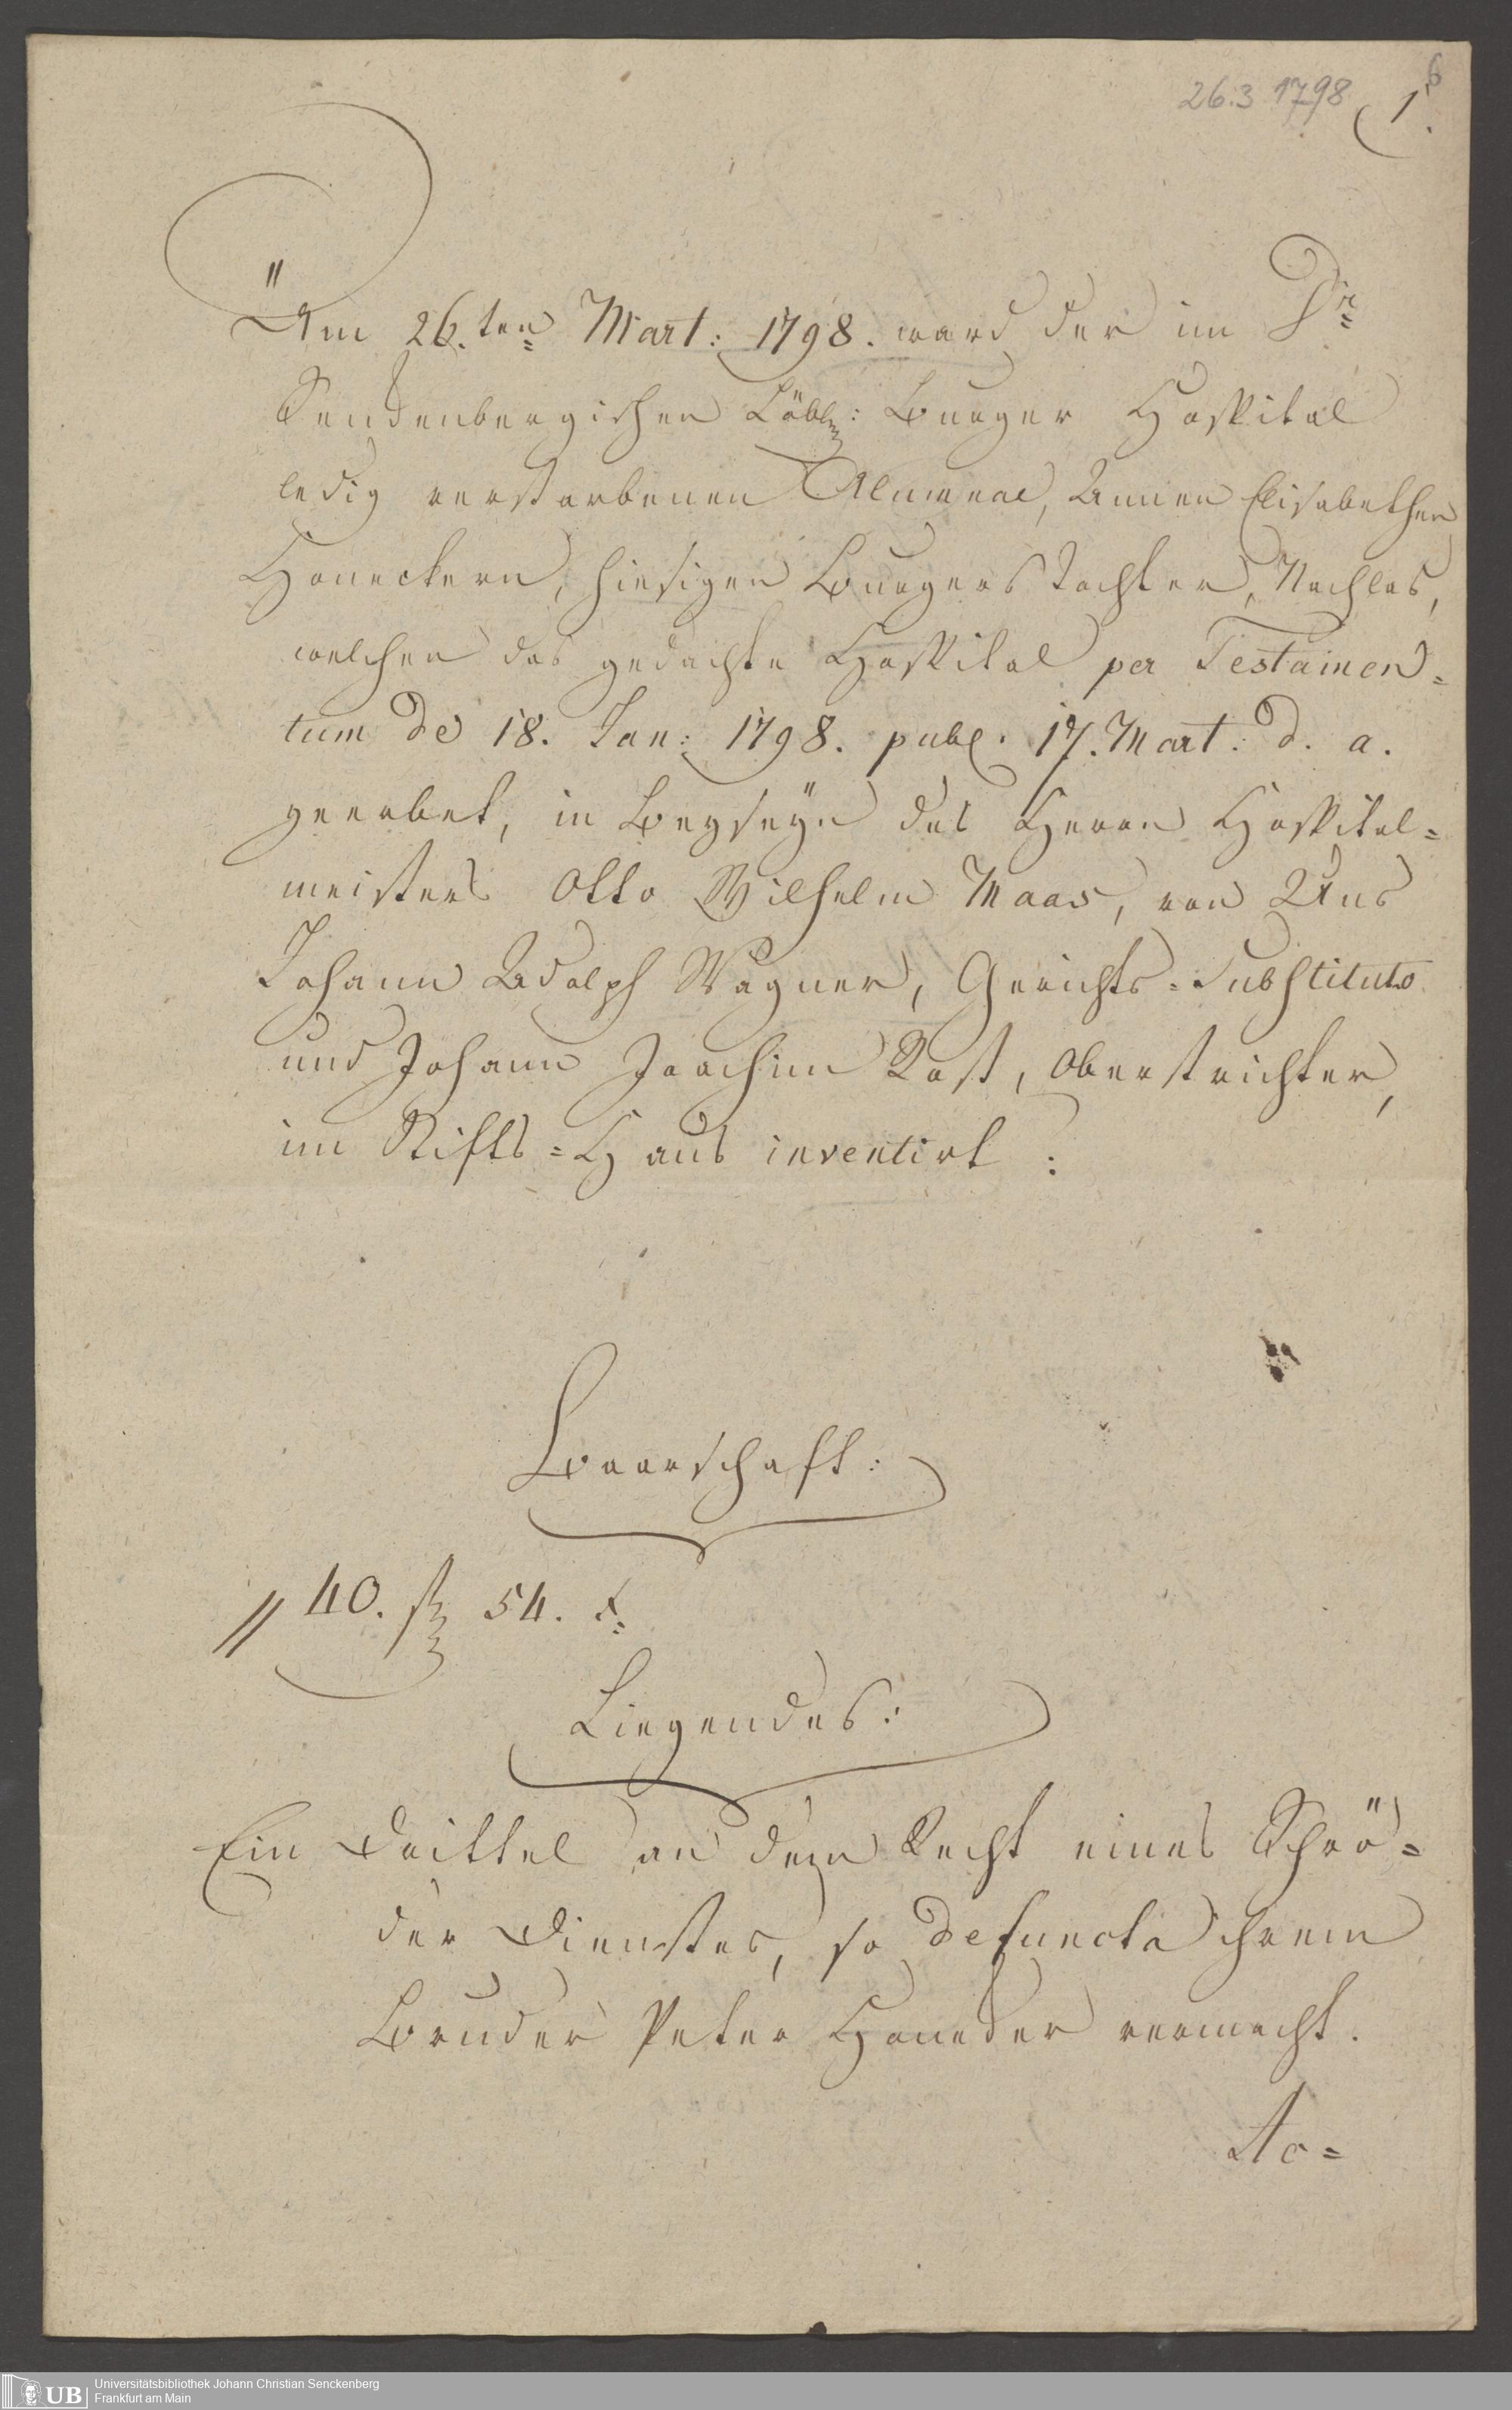 26.3 1798
1.
Am 26.ten Mart: 1798. ward der im Dr
Senckenbergischen Löbl: Burger Hospital
ledig verstorbenen Alumnae, Annen Elisabethen
Haueckern, hiesigen Burgers Tochter, Nachlas,
welchen das gedachte Hospital per Testamen=
tum de 18. Jan: 1798. publ. 17. Mart: d. a.
geerbet, in Beyseyn des Herrn Hospital=
meisters Otto Wilhelm Maas, von Uns
Johann Adolph Wagner, Gerichts=Substituto
und Johann Joachim Rost, Oberstrichter,
im Stifts=Haus inventirt:
Baarschaft:
40. f 54. x.
Liegendes:
Ein Drittel an dem Recht eines Schrö=
der Dienstes, so defuncta ihrem
Bruder Peter vermacht.
Ac=
UB
Universitätsbibliothek Johann Christian Senckenberg
Frankfurt am Main